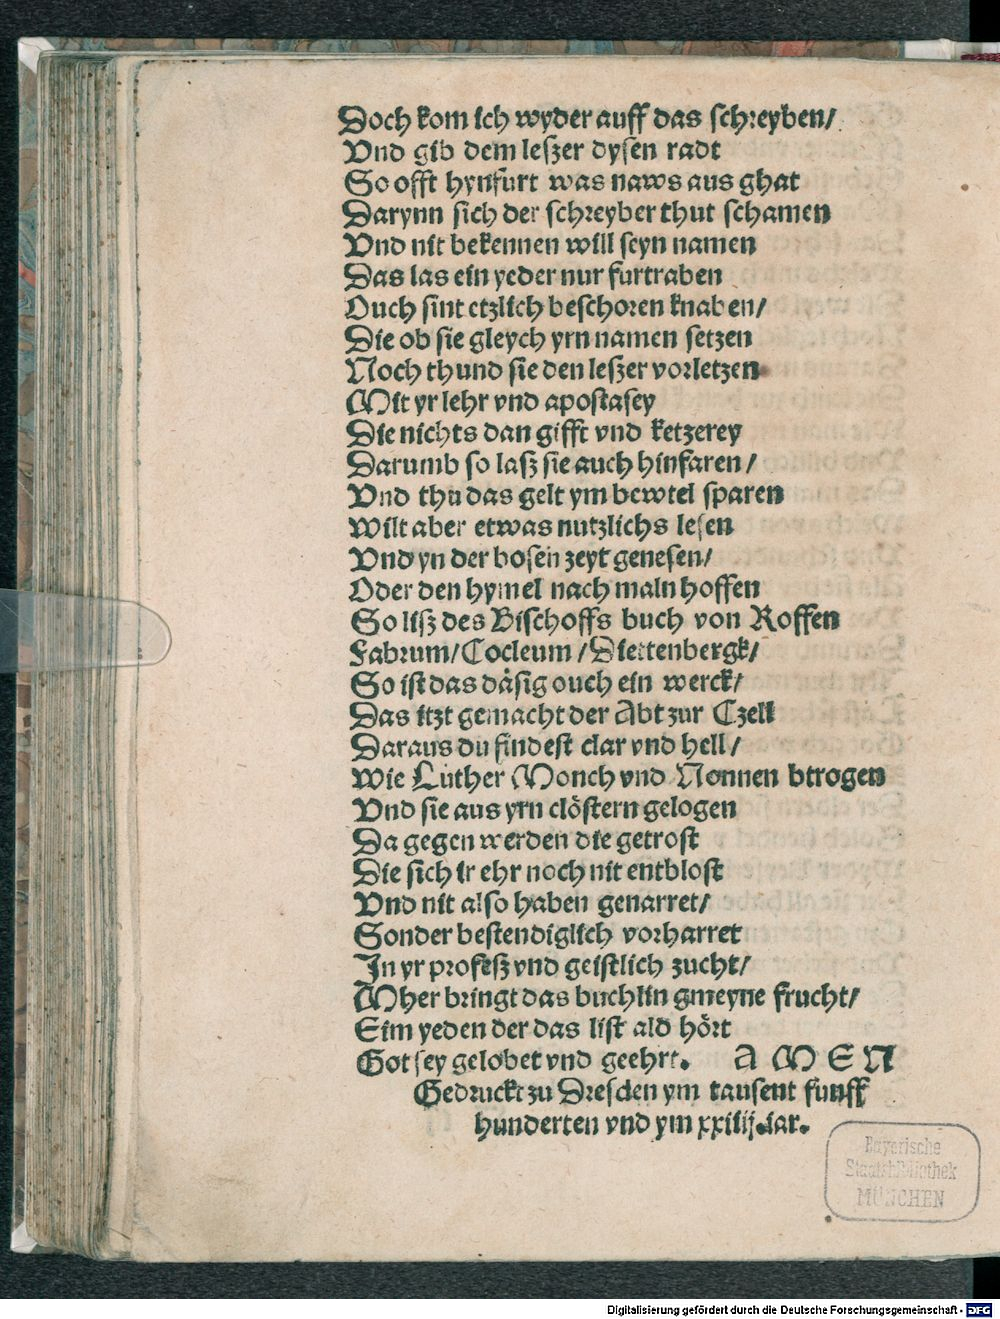 Doch kom ich wyder auff das schreyben/
Vnd gib dem leszer dysen radt
So offt hynfurt was naws aus ghat
Darynn sich der schreyber thut schamen
Vnd nit bekennen will seyn namen
Das las ein yeder nur furtraben
Ouch sint etzlich beschoren knaben/
Die ob sie gleych yrn namen setzen
Noch thund sie den leszer vorletzen
Mit yr lehr vnd apostasey
Die nichts dan gifft vnd ketzerey
Darumb so lasz sie auch hinfaren/
Vnd thu das gelt ym bewtel sparen
Wilt aber etwas nutzlichs lesen
Vnd yn der bosen zeyt genesen/
Oder den hymel nach maln hoffen
So lisz des Bischoffs buch von Roffen
Fabrum/Cocleum/Diettenbergk/
So ist das däsig ouch ein werck/
Das itzt gemacht der Abt zur Czell
Daraus du findest clar vnd hell/
Wie Luther Monch vnd Nonnen btrogen
Vnd sie aus yrn clöstern gelogen
Da gegen werden die getrost
Die sich ir ehr noch nit entblost
Vnd nit also haben genarret/
Sonder bestendiglich vorharret
In yr profesz vnd geistlich zucht/
Mher bringt das buchlin gmeyne frucht/
Eim yeden der das list ald hört
Got sey gelobet vnd geehrt. AMEN
Gedruckt zu Dresden ym tausent funff
hunderten vnd ym xxiiij.iar.
Bayerische
Staatsbibliothek
MÜNCHEN
Digitalisierung gefördert durch die Deutsche Forschungsgemeinschaft - DFG